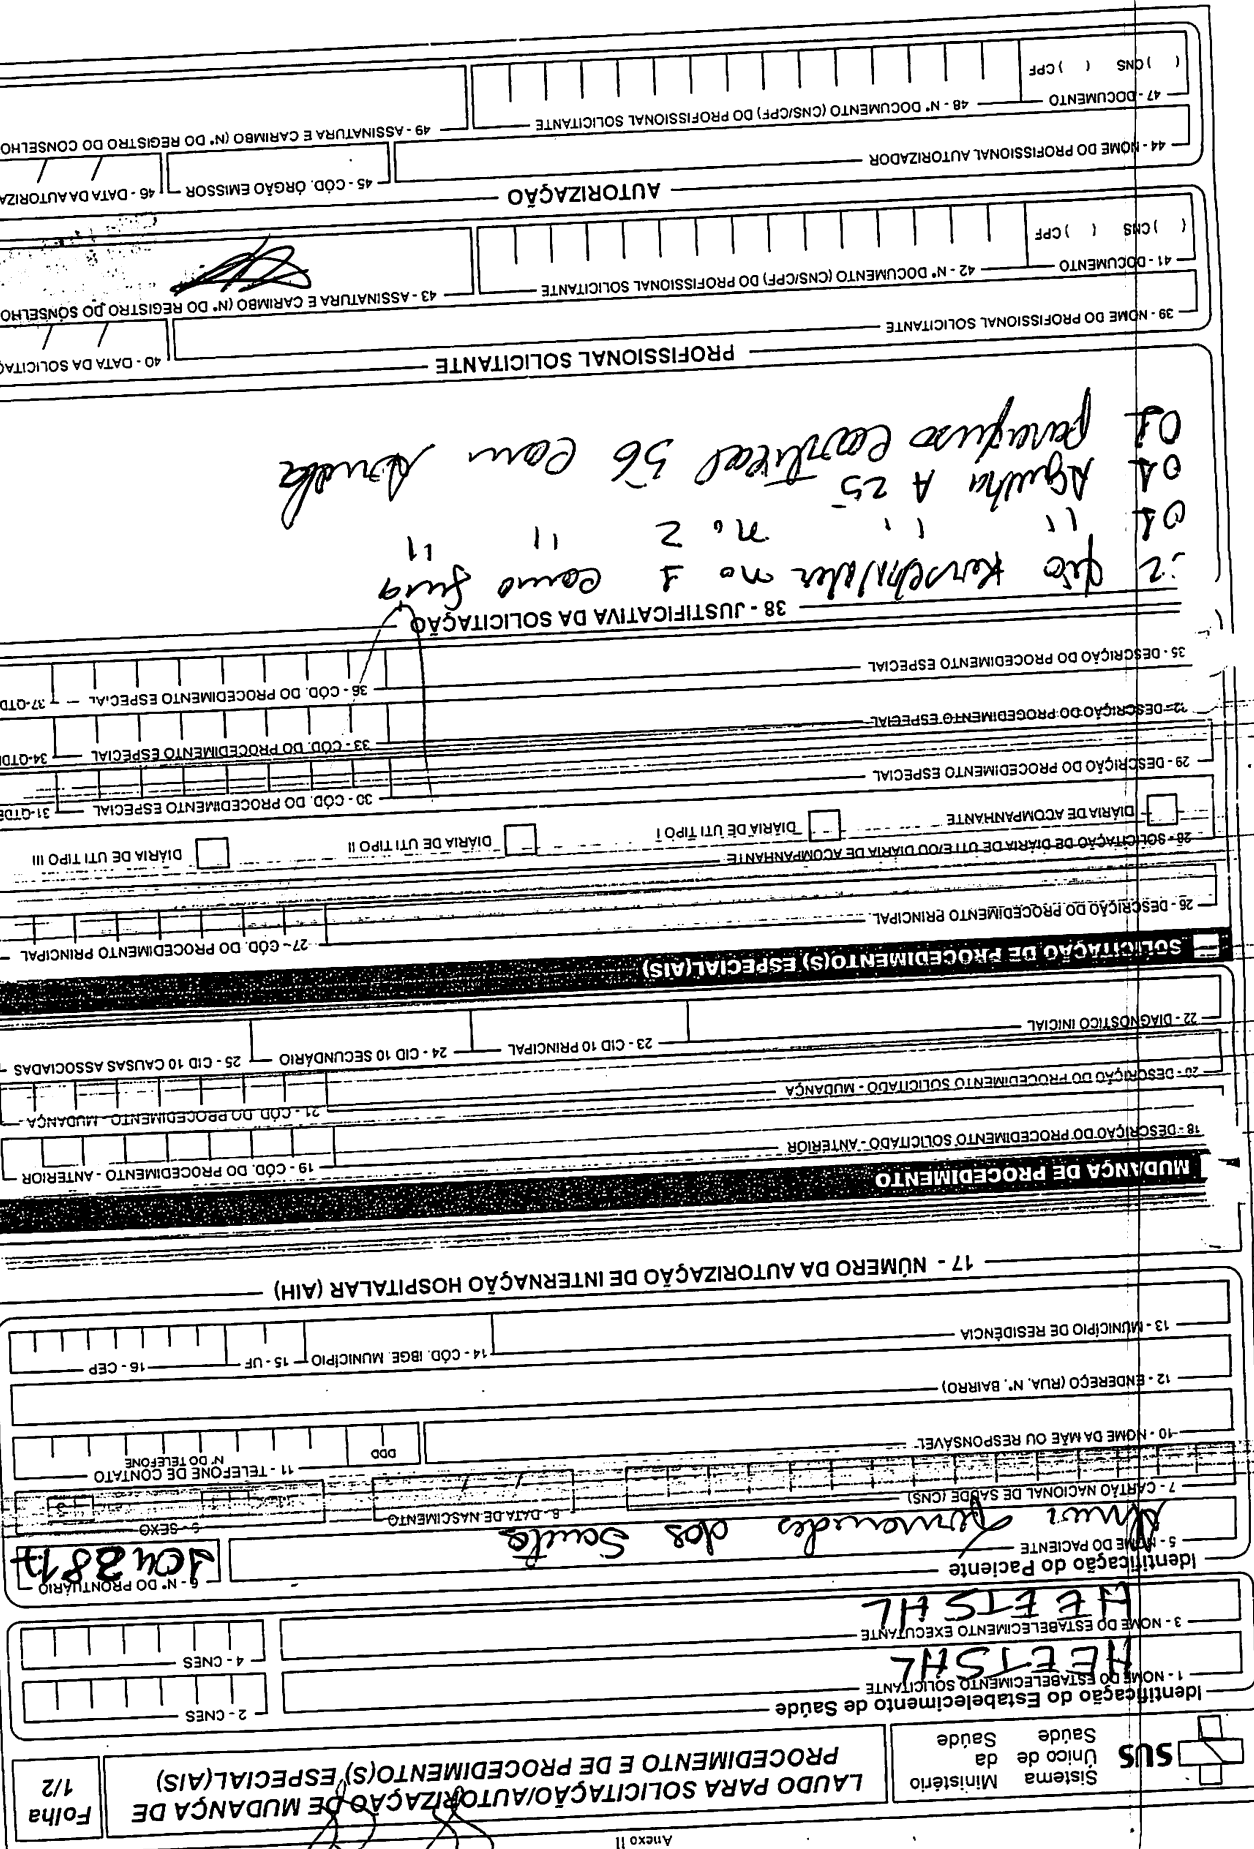 Anexo II
SUS
Sistema Único de Saúde
Ministério da Saúde
LAUDO PARA SOLICITAÇÃO/AUTORIZAÇÃO DE MUDANÇA DE
PROCEDIMENTO E DE PROCEDIMENTO(S) ESPECIAL(AIS)
Folha
1/2
Identificação do Estabelecimento de Saúde
1 - NOME DO ESTABELECIMENTO SOLICITANTE
HEETSHL
2 - CNES
3 - NOME DO ESTABELECIMENTO EXECUTANTE
HEETSHL
4 - CNES
Identificação do Paciente
5 - NOME DO PACIENTE
dos Santos
6 - Nº DO PRONTUÁRIO
7 - CARTÃO NACIONAL DE SAÚDE (CNS)
8 - DATA DE NASCIMENTO
/ /
9 - SEXO
3
10 - NOME DA MÃE OU RESPONSÁVEL
11 - TELEFONE DE CONTATO
DDD
Nº DO TELEFONE
12 - ENDEREÇO (RUA, Nº, BAIRRO)
13 - MUNICÍPIO DE RESIDÊNCIA
14 - CÓD. IBGE MUNICÍPIO
15 - UF
16 - CEP
17 - NÚMERO DA AUTORIZAÇÃO DE INTERNAÇÃO HOSPITALAR (AIH)
MUDANÇA DE PROCEDIMENTO
18 - DESCRIÇÃO DO PROCEDIMENTO SOLICITADO - ANTERIOR
19 - CÓD. DO PROCEDIMENTO - ANTERIOR
20 - DESCRIÇÃO DO PROCEDIMENTO SOLICITADO - MUDANÇA
21 - CÓD. DO PROCEDIMENTO - MUDANÇA
22 - DIAGNÓSTICO INICIAL
23 - CID 10 PRINCIPAL
24 - CID 10 SECUNDÁRIO
25 - CID 10 CAUSAS ASSOCIADAS
SOLICITAÇÃO DE PROCEDIMENTO(S) ESPECIAL(AIS)
26 - DESCRIÇÃO DO PROCEDIMENTO PRINCIPAL
27 - CÓD. DO PROCEDIMENTO PRINCIPAL
28 - SOLICITAÇÃO DE DIÁRIA DE UTI E/OU DIÁRIA DE ACOMPANHANTE
DIÁRIA DE ACOMPANHANTE
DIÁRIA DE UTI TIPO I
DIÁRIA DE UTI TIPO II
DIÁRIA DE UTI TIPO III
29 - DESCRIÇÃO DO PROCEDIMENTO ESPECIAL
30 - CÓD. DO PROCEDIMENTO ESPECIAL
31-QTDE
- DESCRIÇÃO DO PROCEDIMENTO ESPECIAL
33 - CÓD. DO PROCEDIMENTO ESPECIAL
34-QTDE
35 - DESCRIÇÃO DO PROCEDIMENTO ESPECIAL
36 - CÓD. DO PROCEDIMENTO ESPECIAL
37-QTD
38 - JUSTIFICATIVA DA SOLICITAÇÃO
2 fio Kerschnner no 1 como guia
01 " " n. 2 " "
01 Agulha A 25
01 parafuso cortical 56 com
PROFISSIONAL SOLICITANTE
39 - NOME DO PROFISSIONAL SOLICITANTE
40 - DATA DA SOLICITAÇ
/ /
41 - DOCUMENTO
( ) CNS ( ) CPF
42 - Nº DOCUMENTO (CNS/CPF) DO PROFISSIONAL SOLICITANTE
43 - ASSINATURA E CARIMBO (Nº DO REGISTRO DO CONSELHO
AUTORIZAÇÃO
44 - NOME DO PROFISSIONAL AUTORIZADOR
45 - CÓD. ÓRGÃO EMISSOR
46 - DATA DA AUTORIZA
/ /
47 - DOCUMENTO
( ) CNS ( ) CPF
48 - Nº DOCUMENTO (CNS/CPF) DO PROFISSIONAL SOLICITANTE
49 - ASSINATURA E CARIMBO (Nº DO REGISTRO DO CONSELHO